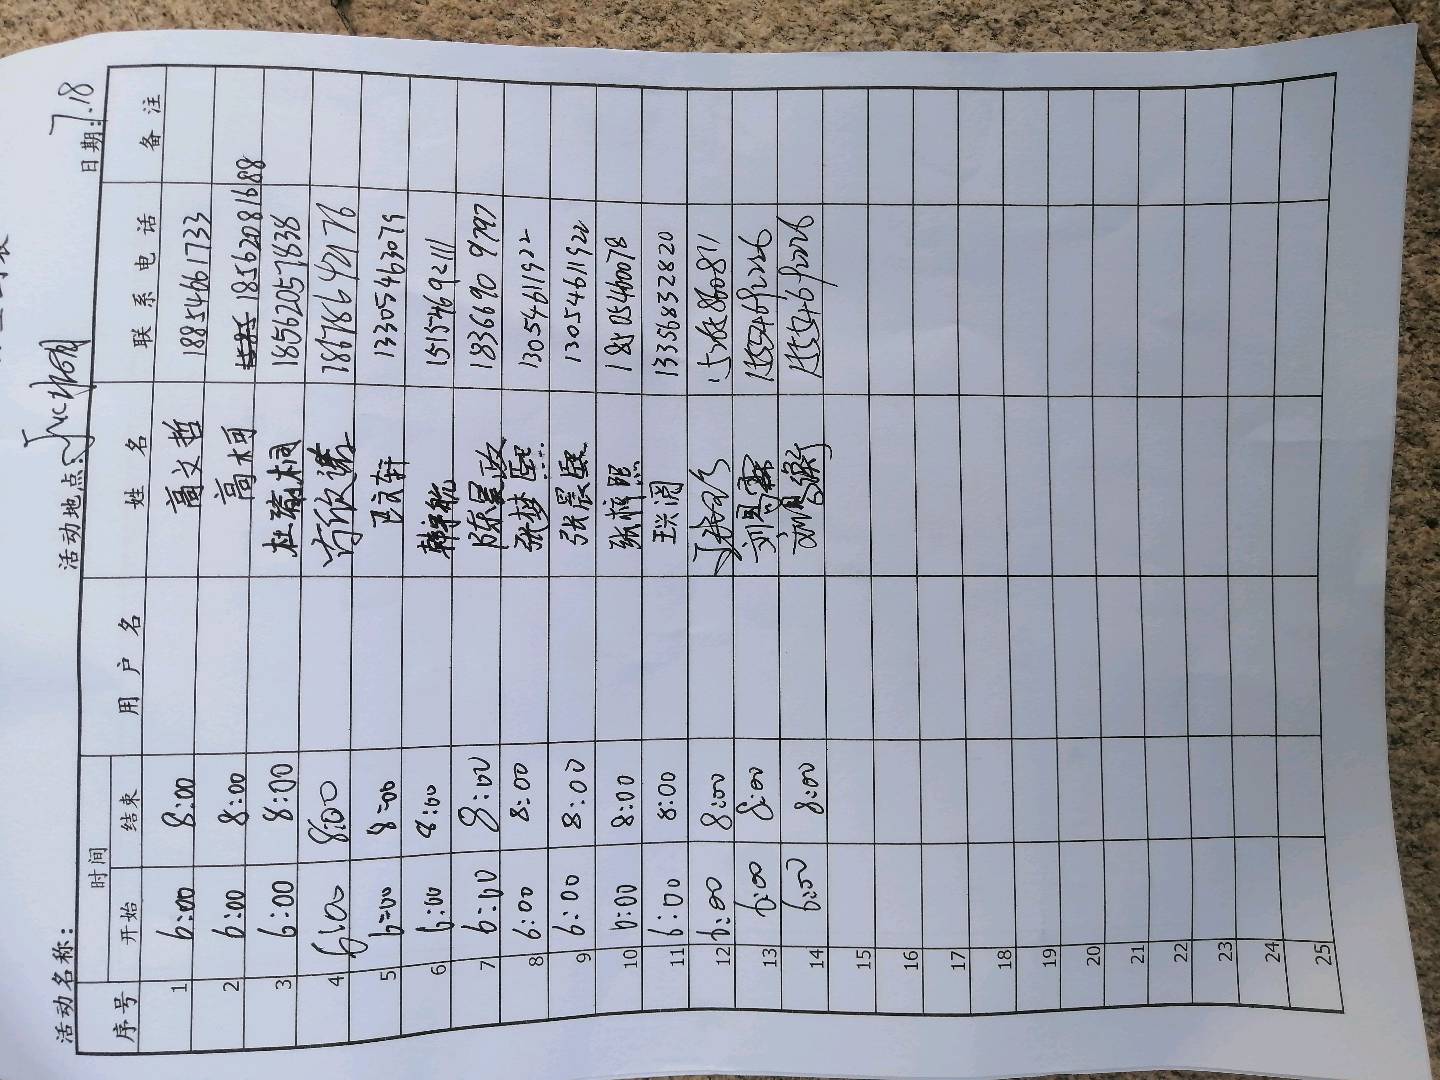 活动名称： 活动地点： 日期：7.18
序号 时间 用户名 姓名 联系电话 备注
开始 结束
1 6:00 8:00 高文哲 18854661733
2 6:00 8:00 高柯 18562081688
3 6:00 8:00 杜瑜桐 18562057838
4 6:00 8:00 18678642176
5 6:00 8:00 13305463079
6 6:00 8:00 15154692111
7 6:00 8:00 陈昱政 18366909797
8 6:00 8:00 张梦熙 13054611922
9 6:00 8:00 张晨熙 13054611922
10 6:00 8:00 18505460078
11 6:00 8:00 13356832820
12 6:00 8:00
13 6:00 8:00
14 6:00 8:00
15
16
17
18
19
20
21
22
23
24
25